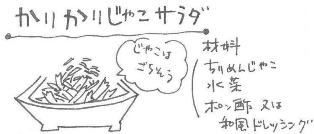 かりかりじゃこサラダ
じゃこは
ごちそう
材料
ちりめんじゃこ
水菜
ポン酢 又は
和風ドレッシング